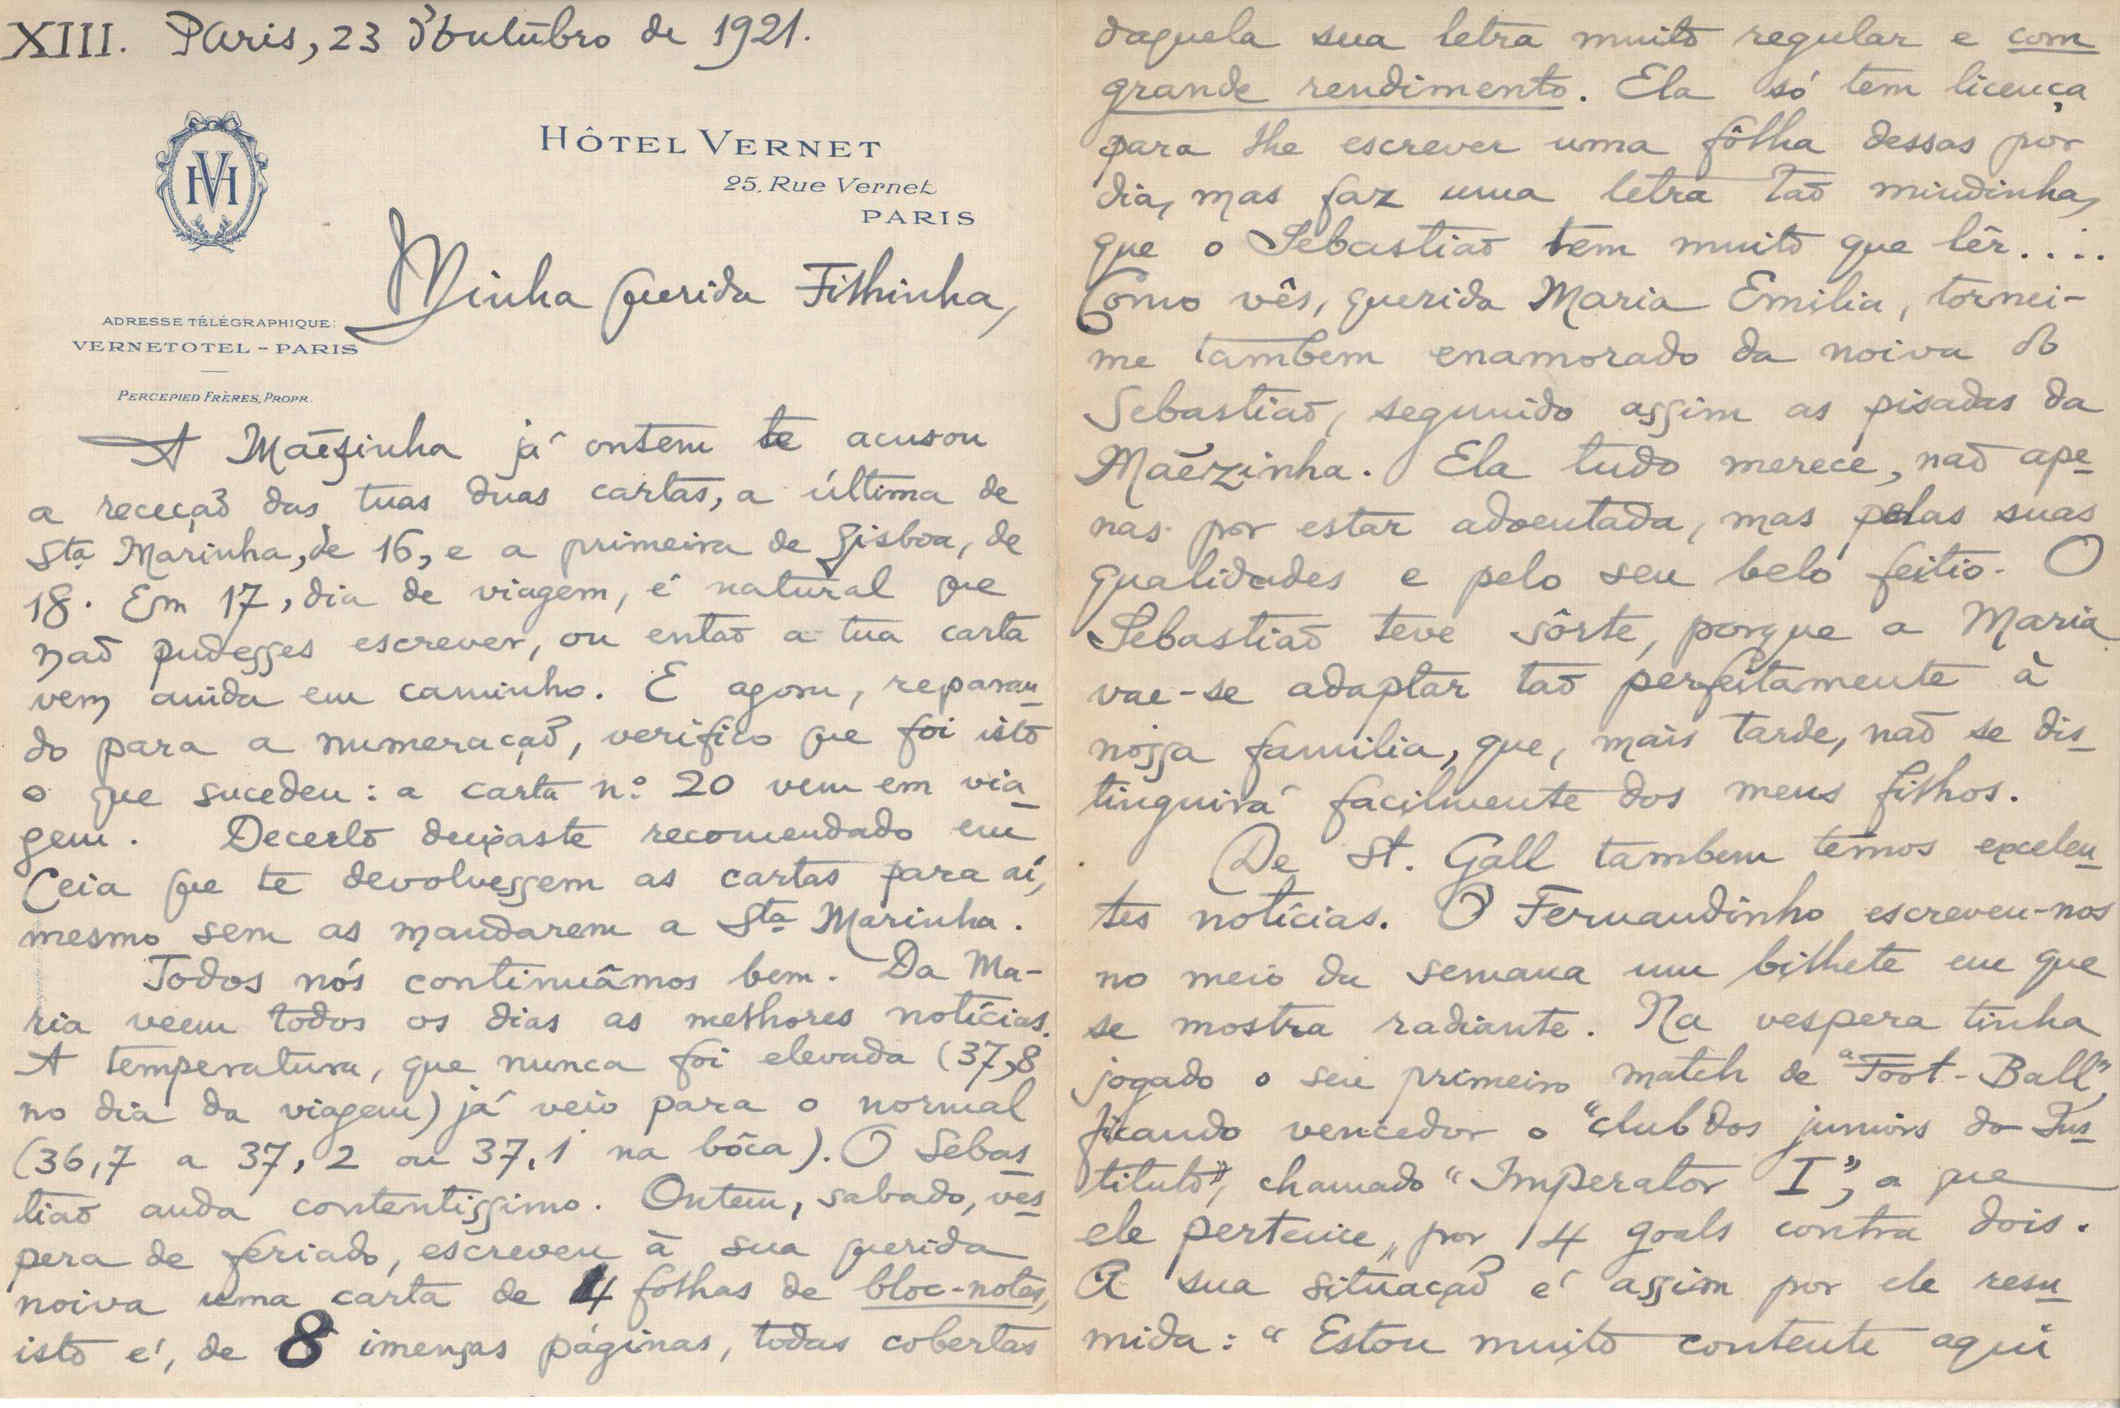 XIII. Paris, 23 d'Outubro de 1921.
HÔTEL VERNET
25, Rue Vernet
PARIS
HVH
Minha querida Filhinha,
ADRESSE TÉLÉGRAPHIQUE:
VERNETOTEL - PARIS
PERCEPIED FRÈRES, PROPR.
A Mãezinha já ontem te acusou
a receçaõ das tuas duas cartas, a última de
Sta Marinha, de 16, e a primeira de Lisboa, de
18. Em 17, dia de viagem, é natural que
naõ pudesses escrever, ou entaõ a tua carta
vem ainda em caminho. E agora, reparan-
do para a numeraçaõ, verifico que foi isto
o que sucedeu: a carta n.º 20 vem em via-
gem. Decerto deixaste recomendado em
Ceia que te devolvessem as cartas para aí,
mesmo sem as mandarem a Sta Marinha.
Todos nós continuâmos bem. Da Ma-
ria veem todos os dias as melhores notícias.
A temperatura, que nunca foi elevada (37,8
no dia da viagem) já veio para o normal
(36,7 a 37,2 ou 37,1 na bôca). O Sebas-
tiaõ anda contentissimo. Ontem, sabado, ves-
pera de feriado, escreveu à sua querida
noiva uma carta de 4 folhas de bloc-notes,
isto é, de 8 imensas páginas, todas cobertas
daquela sua letra muito regular e com
grande rendimento. Ela só tem licença
para lhe escrever uma fôlha dessas por
dia, mas faz uma letra taõ miudinha,
que o Sebastiaõ tem muito que lêr....
Como vês, querida Maria Emilia, tornei-
me tambem enamorado da noiva do
Sebastiaõ, seguindo assim as pisadas da
Mãezinha. Ela tudo merece, naõ ape-
nas por estar adoentada, mas pelas suas
qualidades e pelo seu belo feitio. O
Sebastiaõ teve sôrte, porque a Maria
vae-se adaptar taõ perfeitamente à
nossa familia, que, mais tarde, naõ se dis-
tinguirá facilmente dos meus filhos.
De St. Gall tambem temos excelen-
tes notícias. O Fernandinho escreveu-nos
no meio da semana um bilhete em que
se mostra radiante. Na vespera tinha
jogado o seu primeiro match de "Foot-Ball",
ficando vencedor o "club dos juniors do Ins-
tituto", chamado "Imperator I", a que
ele pertence, por 4 goals contra dois.
A sua situaçaõ é assim por ele resu-
mida: "Estou muito contente aqui